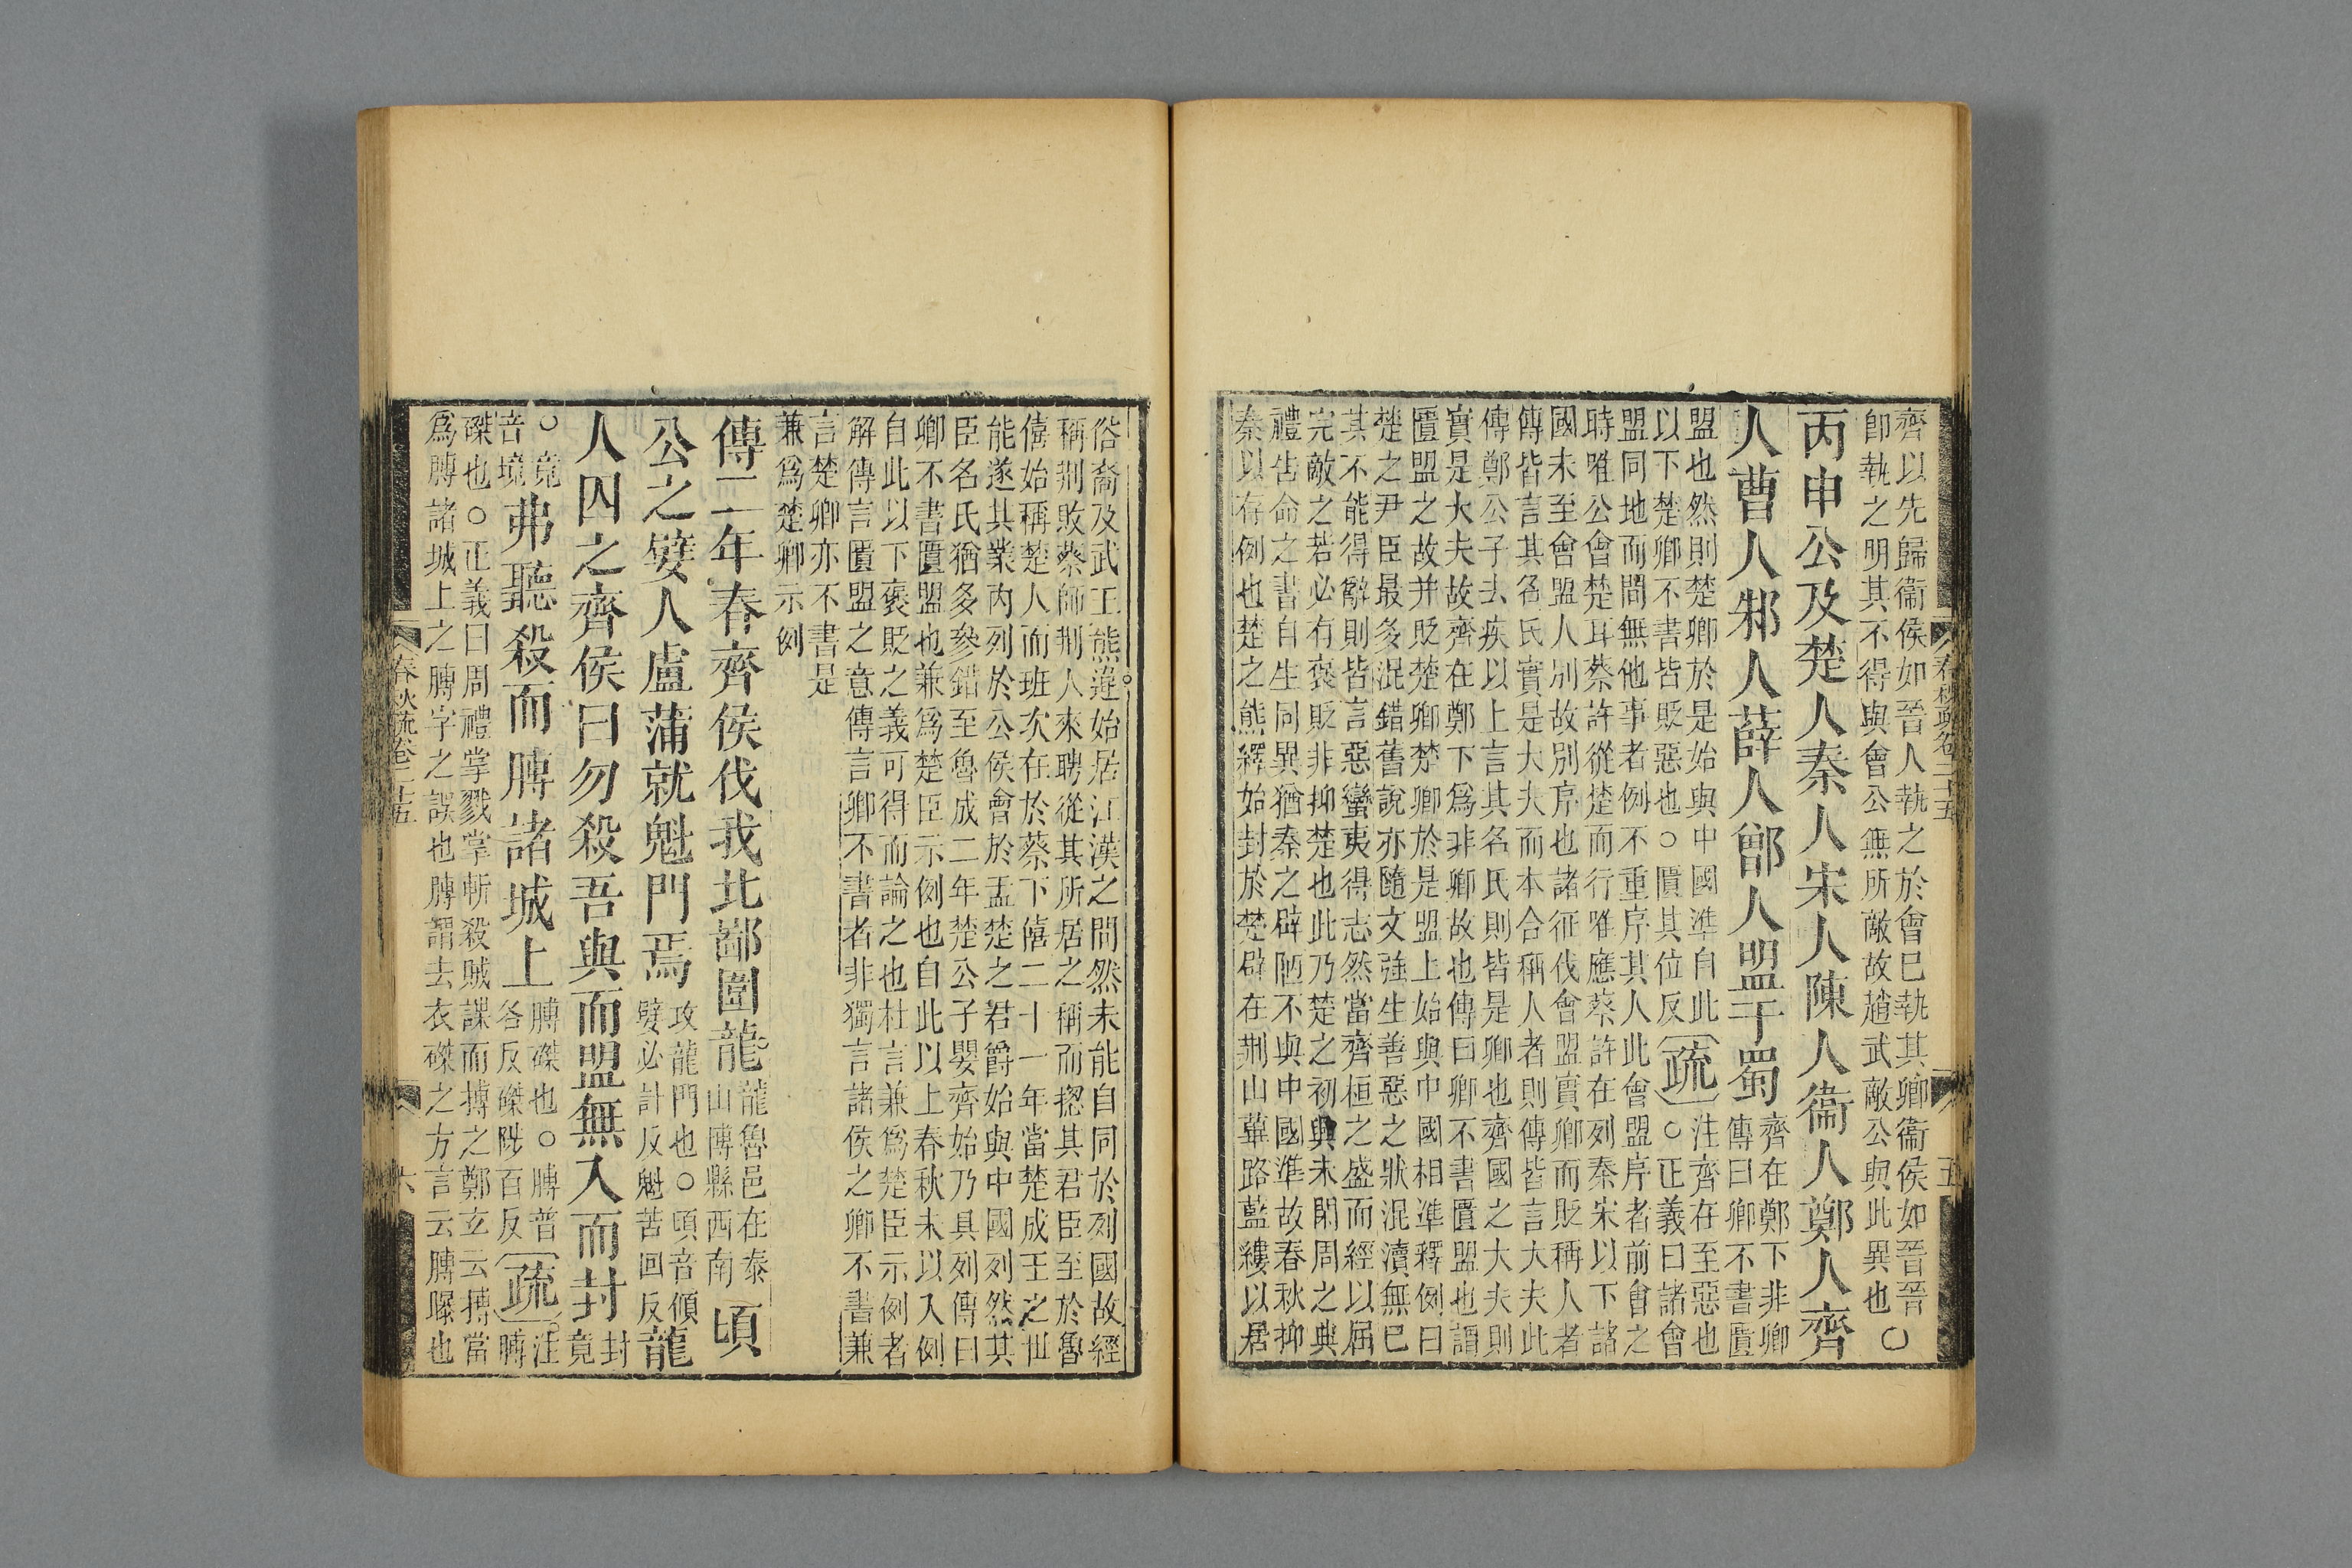 齊以先歸衞侯如晉人執之於會已執其卿衞侯如晉晉
卽執之明其不得與會公無所敵故趙武敵公與此異也○
丙申公及楚人秦人宋人陳人衞人鄭人齊
人曹人邾人薛人鄫人盟于蜀
齊在鄭下非卿
傳曰卿不書匱
盟也然則楚卿於是始與中國準自此
以下楚卿不書皆貶惡也○匱其位反
疏
注齊在至惡也
○正義曰諸會
盟同地而間無他事者例不重序其人此會盟序者前會之
時唯公會楚耳蔡許從楚而行唯應蔡許在列秦宋以下諸
國未至會盟人別故別序也諸征伐會盟實卿而貶稱人者
傳皆言其名氏實是大夫而本合稱人者則傳皆言大夫此
傳鄭公子去疾以上言其名氏則皆是卿也齊國之大夫則
實是大夫故齊在鄭下爲非卿故也傳曰卿不書匱盟也謂
匱盟之故并貶楚卿楚卿於是盟上始與中國相準釋例曰
楚之尹臣最多混錯舊說亦隨文強生善惡之狀混瀆無已
其不能得辭則皆言惡蠻夷得志然當齊桓之盛而經以屈
完敵之若必有褒貶非抑楚也此乃楚之初興未閑周之典
禮告命之書自生同異猶秦之辟陋不與中國準故春秋抑
秦以存例也楚之熊繹始封於楚辟在荆山蓽路藍縷以居
春秋疏卷二十五
五
俗裔及武王熊達始居江漢之間然未能自同於列國故經
稱荆敗蔡師荆人來聘從其所居之稱而揔其君臣至於魯
僖始稱楚人而班次在於蔡下僖二十一年當楚成王之世
能遂其業內列於公侯會於盂楚之君爵始與中國列然其
臣名氏猶多參錯至魯成二年楚公子嬰齊始乃具列傳曰
卿不書匱盟也兼爲楚臣示例也自此以上春秋未以入例
自此以下褒貶之義可得而論之也杜言兼爲楚臣示例者
解傳言匱盟之意傳言卿不書者非獨言諸侯之卿不書兼
言楚卿亦不書是
兼爲楚卿示例
傳二年春齊侯伐我北鄙圍龍
龍魯邑在泰
山博縣西南
頃
公之嬖人盧蒲就魁門焉
攻龍門也○頃音傾
嬖必計反魁苦回反
龍
人囚之齊侯曰勿殺吾與而盟無入而封
封
竟
○竟
音境
弗聽殺而膊諸城上
膊磔也○膊普
各反磔陟百反
疏
注
膊
磔也○正義曰周禮掌戮掌斬殺賊諜而搏之鄭玄云搏當
爲膊諸城上之膊字之誤也膊謂去衣磔之方言云膊曝也
春秋疏卷二十五
六